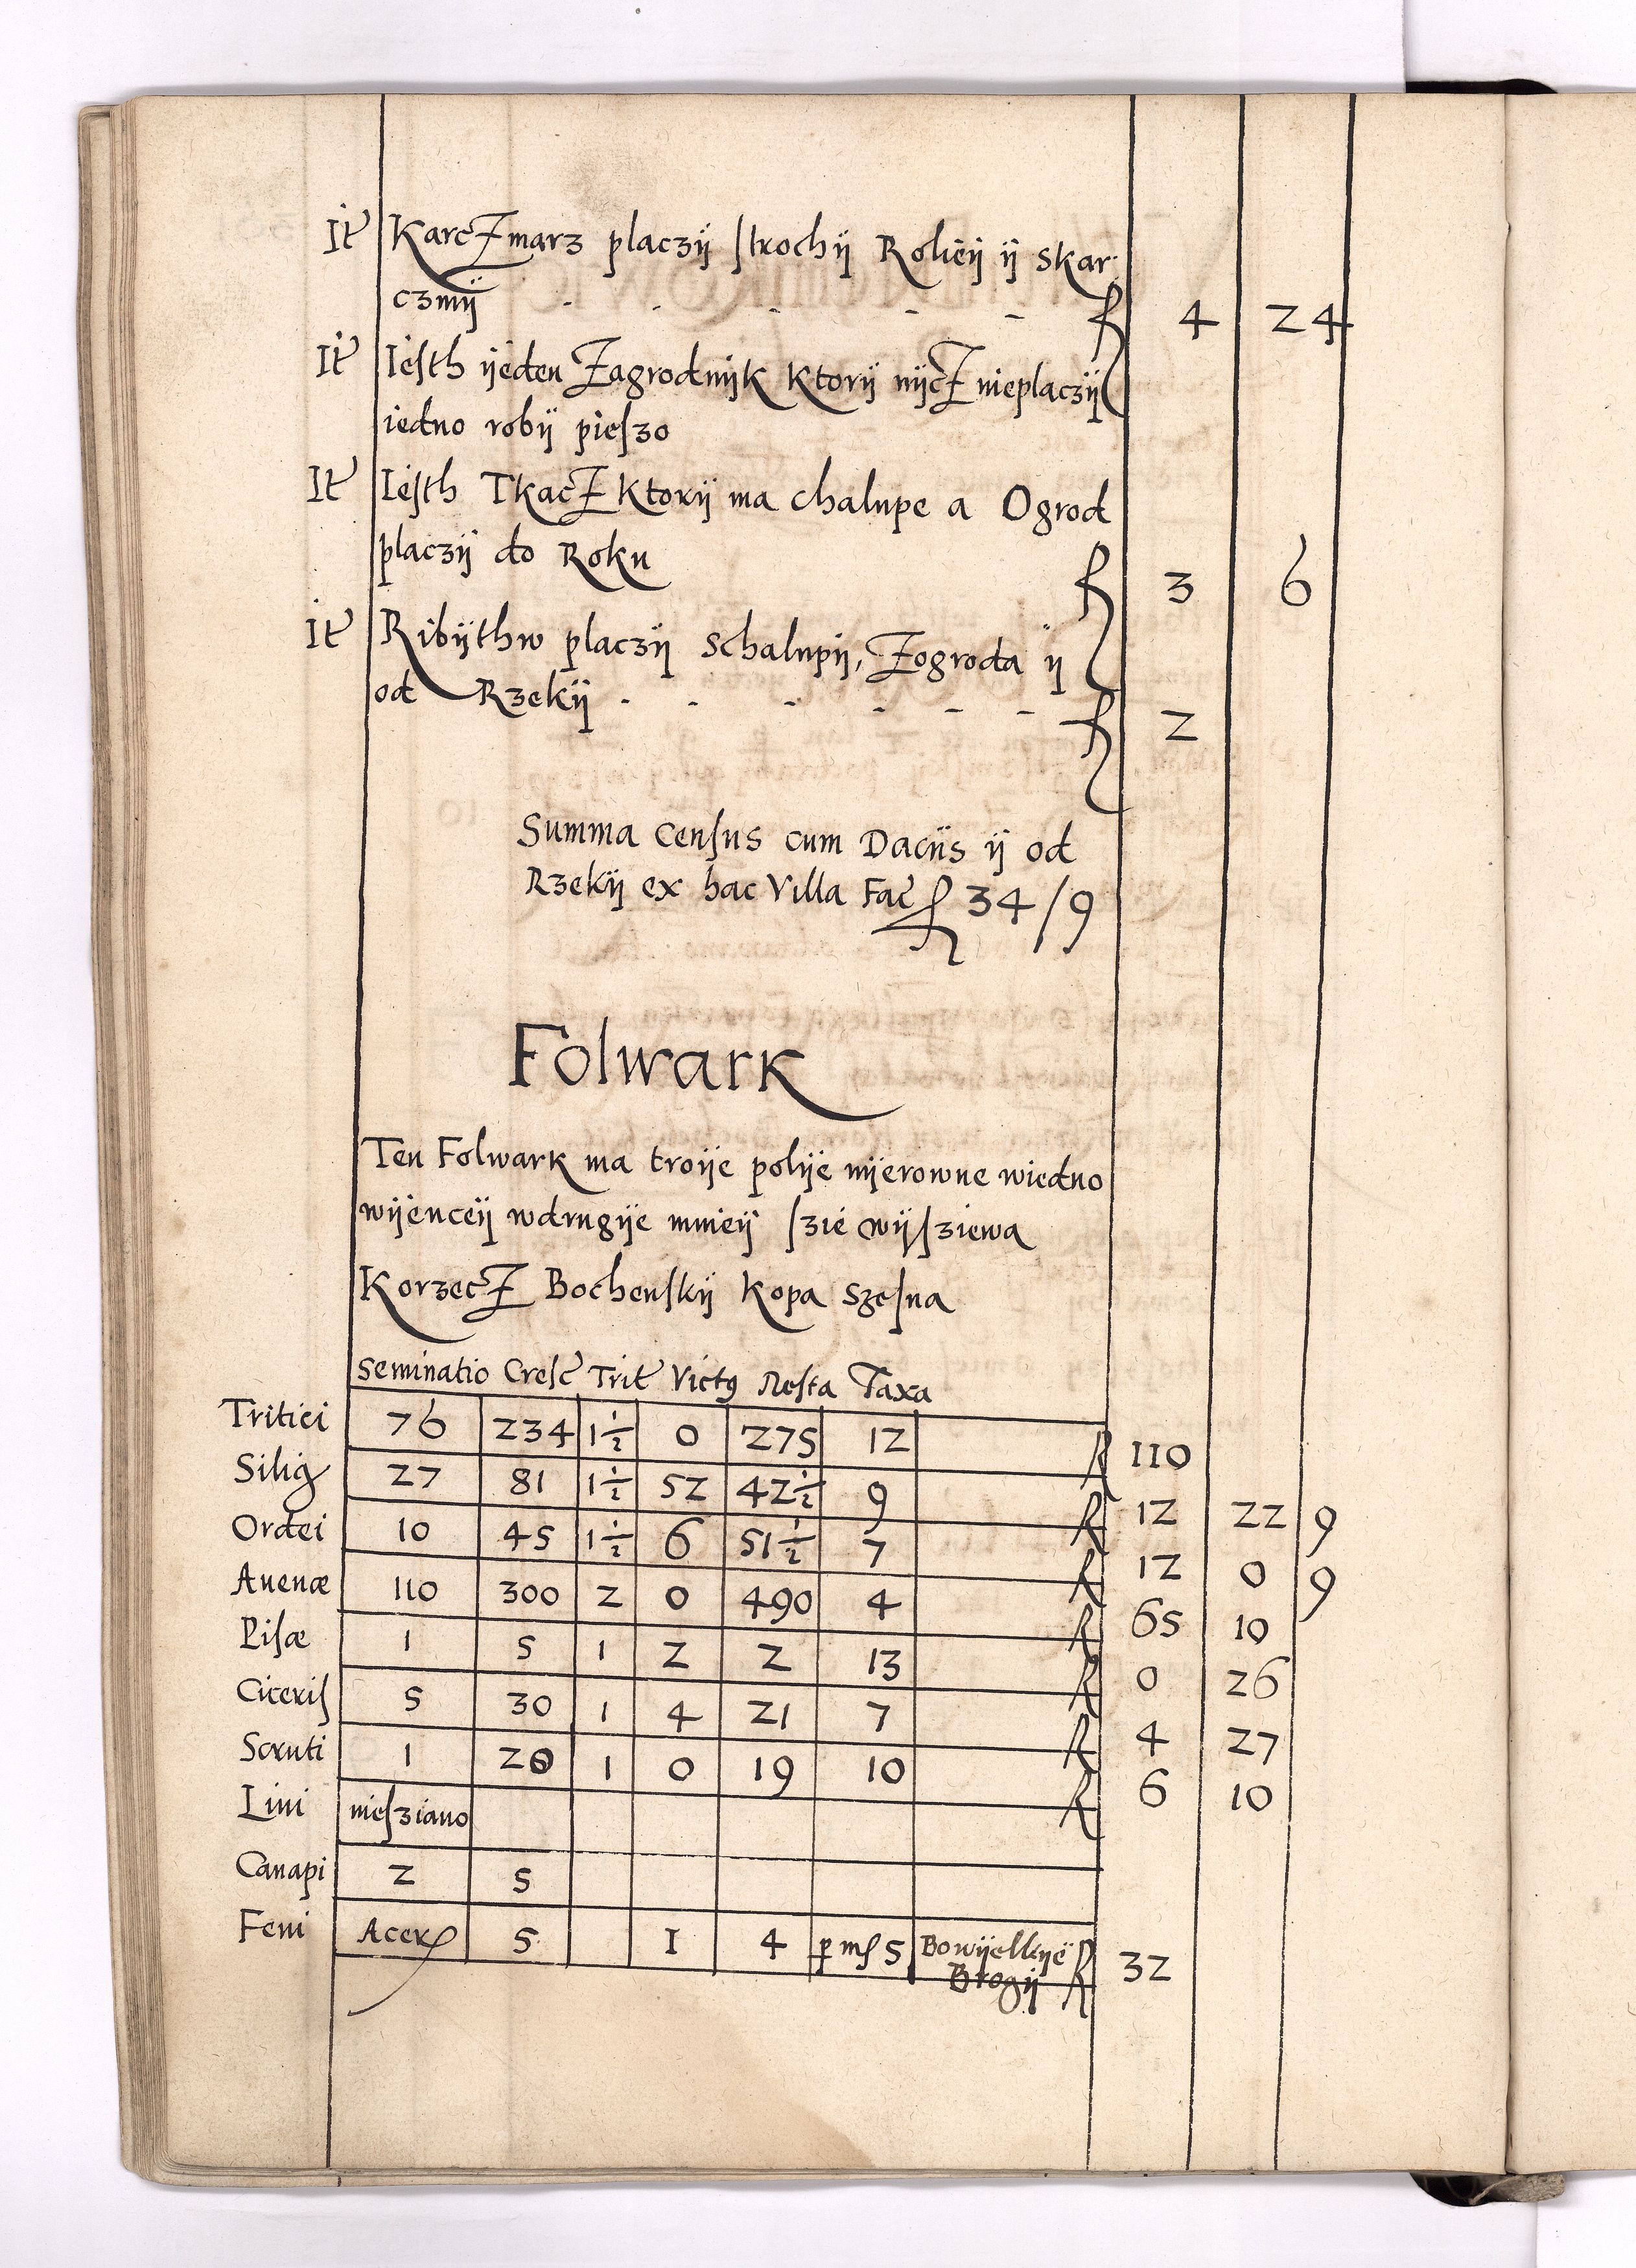 It Karczmarz placzÿ strochÿ Rolieÿ ÿ skar
czmÿ - - - - - fl 4 24
It Iesth ÿeden Zagrodnÿk Ktorÿ nÿcz nieplaczÿ
iedno robÿ pieszo
It Iesth Tkacz Ktorÿ ma chalupe a Ogrod
placzÿ do Roku fl 3 6
It Ribÿthw placzÿ schalupÿ, Zogroda ÿ
od Rzekÿ - - - - - - fl 2
Summa census cum Daciis ÿ od
Rzekÿ ex hac Villa Fac fl 34/9
Folwark
Ten Folwark ma troÿe polÿe nÿerowne wiedno
wÿenceÿ wdrugÿe mnieÿ szie wÿsziewa
Korzecz Bochenskÿ Kopa szesna
Seminatio Cresc Trit Victq Resta Taxa
Tritici 76 234 1½ 0 275 12 fl 110
Silig 27 81 1½ 52 42½ 9 fl 12 22 9
Ordei 10 45 1½ 6 51½ 7 fl 12 0 9
Auenæ 110 300 2 0 490 4 fl 65 10
Pisæ 1 5 1 2 2 13 fl 0 26
Ciceris 5 30 1 4 21 7 fl 4 27
Scruti 1 20 1 0 19 10 fl 6 10
Lini niesziano
Canapi 2 5
Feni Acer 5 1 4 p mſ 5 Bowÿellkÿe fl 32
Brogÿ